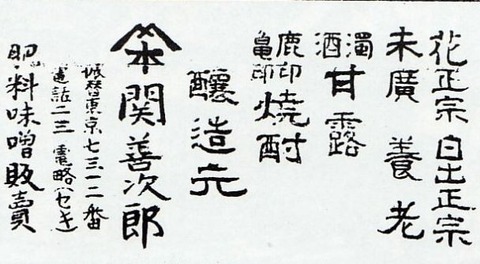 花正宗 白土正宗
末廣 養老
濁酒 甘露
鹿印 亀印 焼酎
醸造元
本 関善次郎
振替東京七三一二番
電話二三 電略(セキ)
肥料味噌販賣